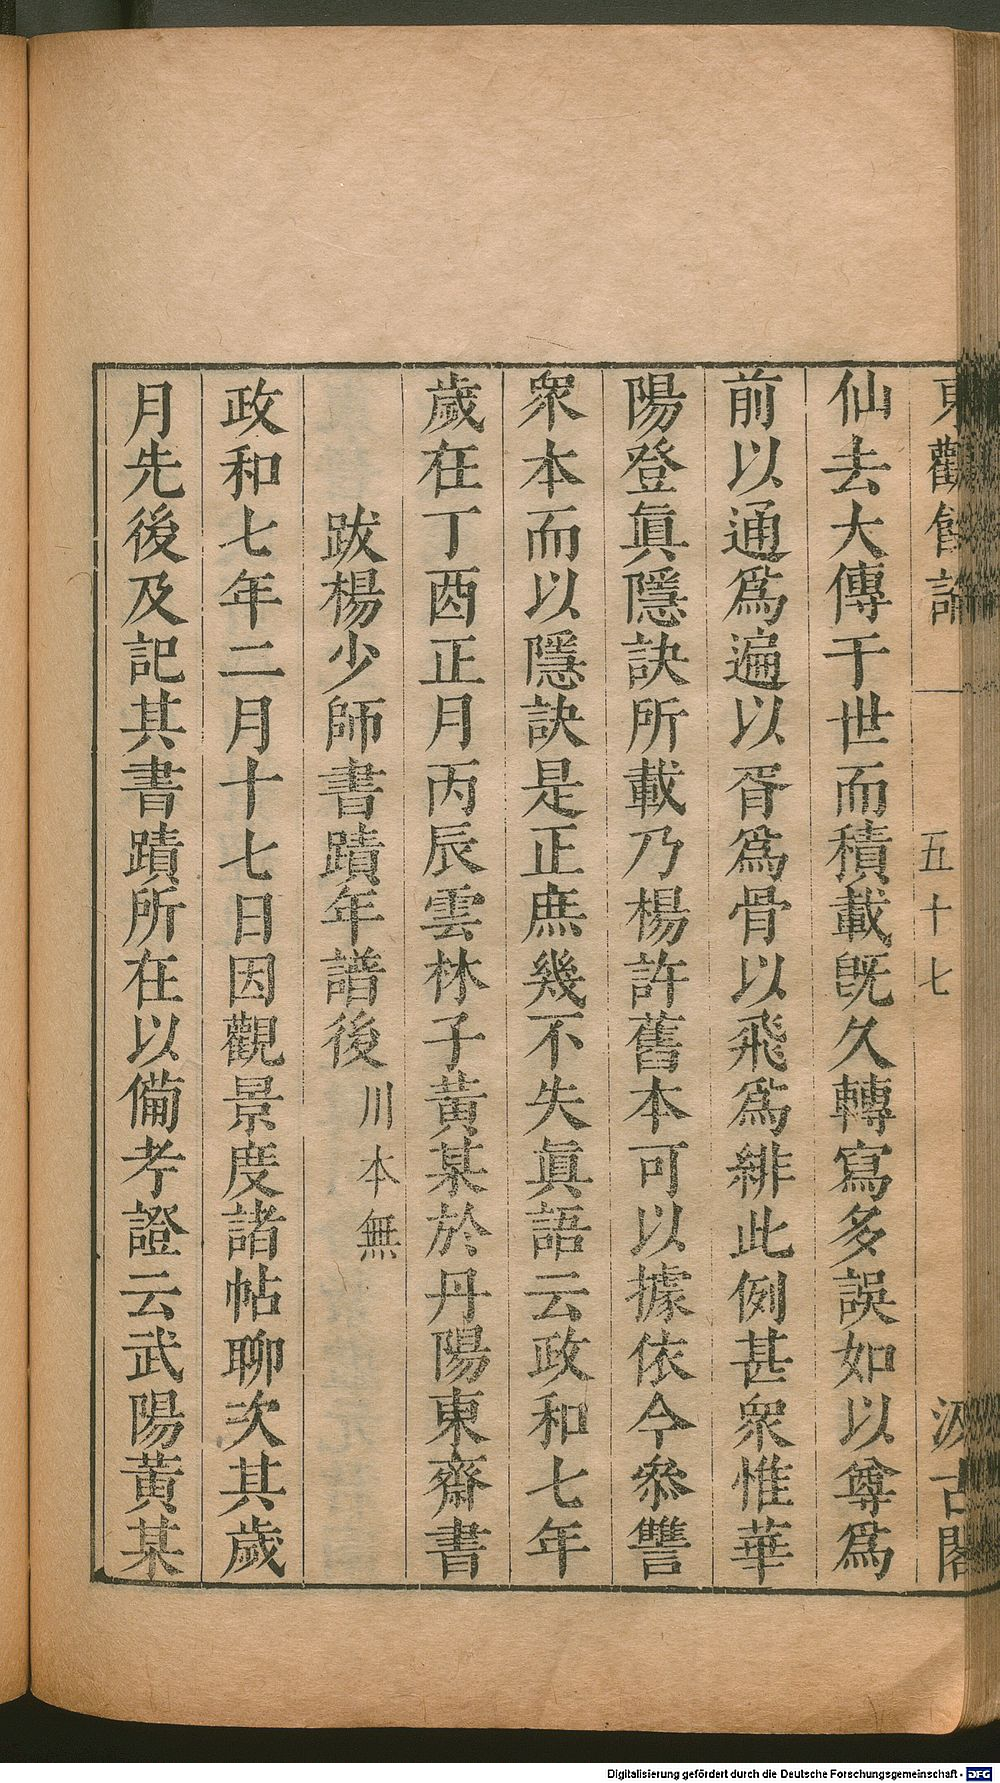 東觀餘論
五十七
汲古閣
仙去大傳于世而積載旣久轉寫多誤如以尊爲
前以通爲遍以胥爲骨以飛爲緋此例甚衆惟華
陽登眞隱訣所載乃楊許舊本可以據依今叅讐
衆本而以隱訣是正庶幾不失眞語云政和七年
歲在丁酉正月丙辰雲林子黃某於丹陽東齋書
跋楊少師書蹟年譜後 川本無
政和七年二月十七日因觀景度諸帖聊次其歲
月先後及記其書蹟所在以備考證云武陽黃某
Digitalisierung gefördert durch die Deutsche Forschungsgemeinschaft - DFG